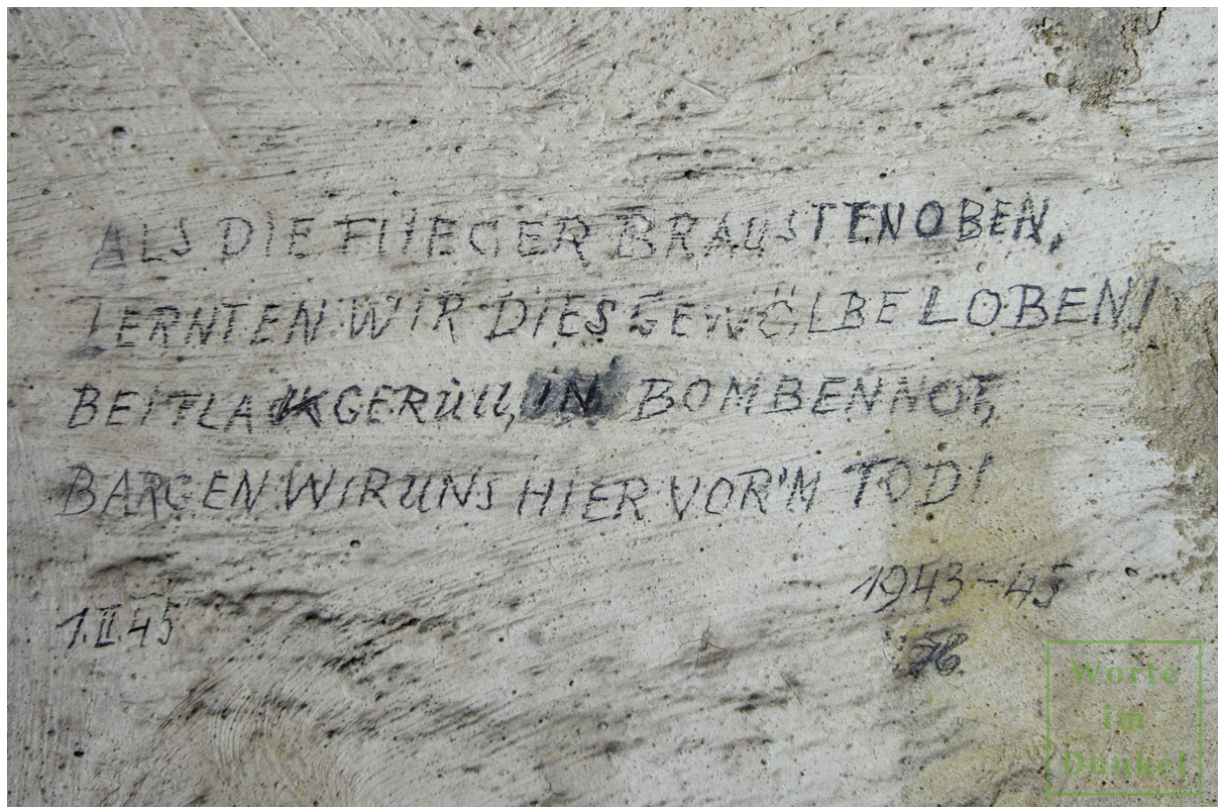 ALS DIE FLIEGER BRAUSTEN OBEN,
LERNTEN WIR DIES GEWÖLBE LOBEN!
BEI FLAKGEBRÜLL, IN BOMBENNOT,
BARGEN WIR UNS HIER VOR'M TOD!
1943-45
1.II.45
Worte
im
Dunkel